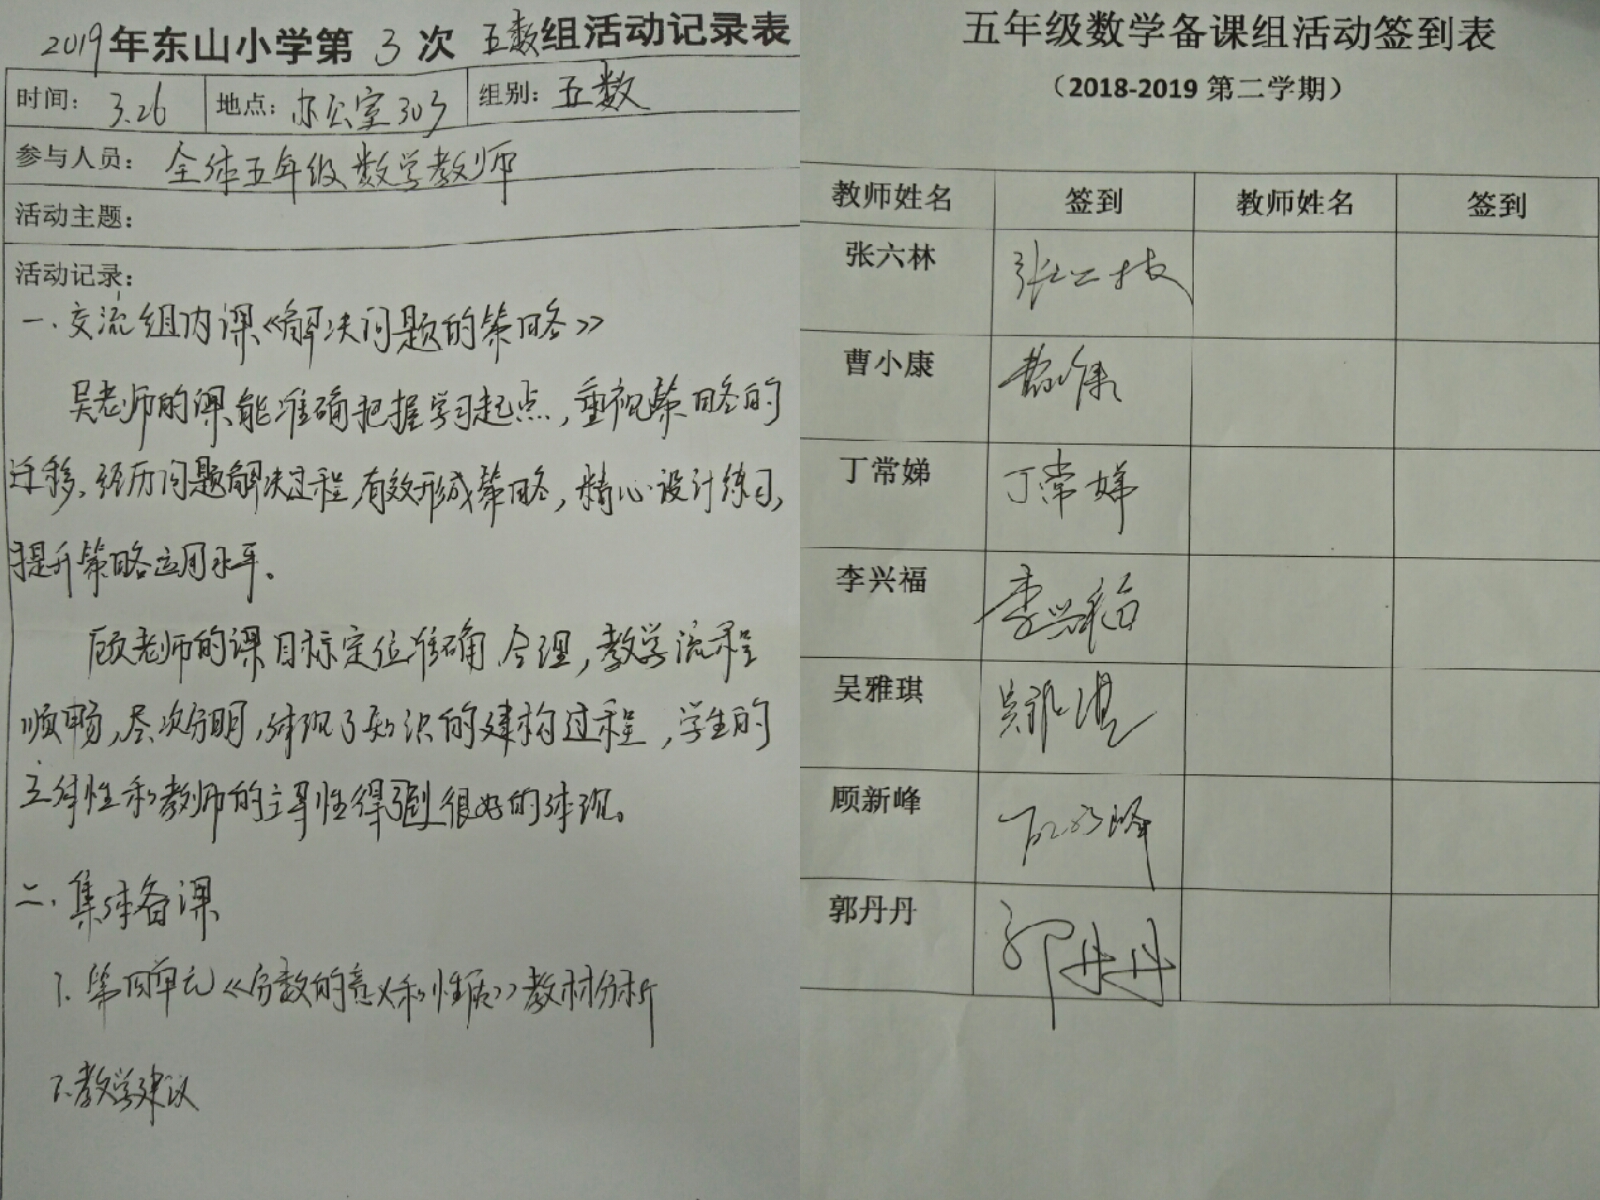 2019年东山小学第3次五数组活动记录表
时间：3.26 地点：办公室303 组别：五数
参与人员：全体五年级数学教师
活动主题：
活动记录：
一、交流组内课《解决问题的策略》
吴老师的课能准确把握学习起点，重视策略的
迁移。经历问题解决过程，有效形成策略，精心设计练习，
提升策略运用水平。
顾老师的课目标定位准确、合理，教学流程
顺畅，层次分明，体现了知识的建构过程，学生的
主体性和教师的主导性得到很好的体现。
二、集体备课
1、第四单元《分数的意义和性质》教材分析
2、教学建议
五年级数学备课组活动签到表
（2018-2019第二学期）
教师姓名 签到 教师姓名 签到
张六林
曹小康
丁常娣 丁常娣
李兴福 李兴福
吴雅琪
顾新峰
郭丹丹 郭丹丹